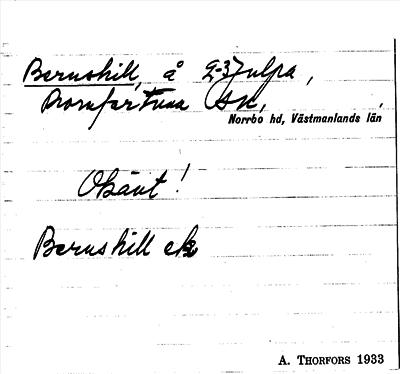 Bernshill, å 2-3 Julpa,
Romfartuna sn,
Norrbo hd, Västmanlands län
Okänt!
Bernshill ek
A. THORFORS 1933